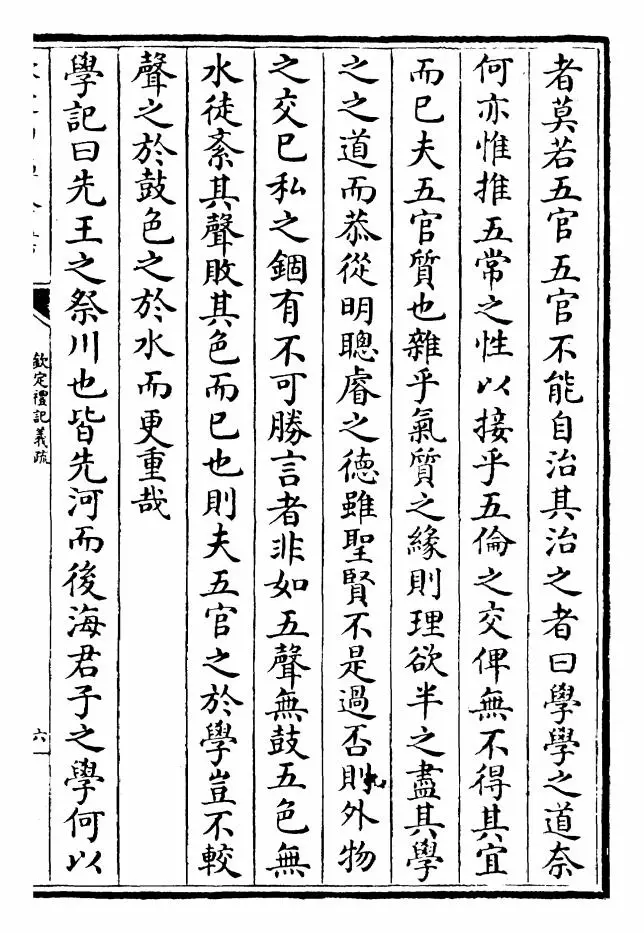 者莫若五官五官不能自治其治之者曰學學之道奈
何亦惟推五常之性以接乎五倫之交俾無不得其宜
而已夫五官質也雜乎氣質之緣則理欲半之盡其學
之之道而恭從明聰睿之德雖聖賢不是過否則外物
之交已私之錮有不可勝言者非如五聲無鼓五色無
水徒紊其聲敗其色而已也則夫五官之於學豈不較
聲之於鼓色之於水而更重哉
學記曰先王之祭川也皆先河而後海君子之學何以
欽定禮記義疏
六